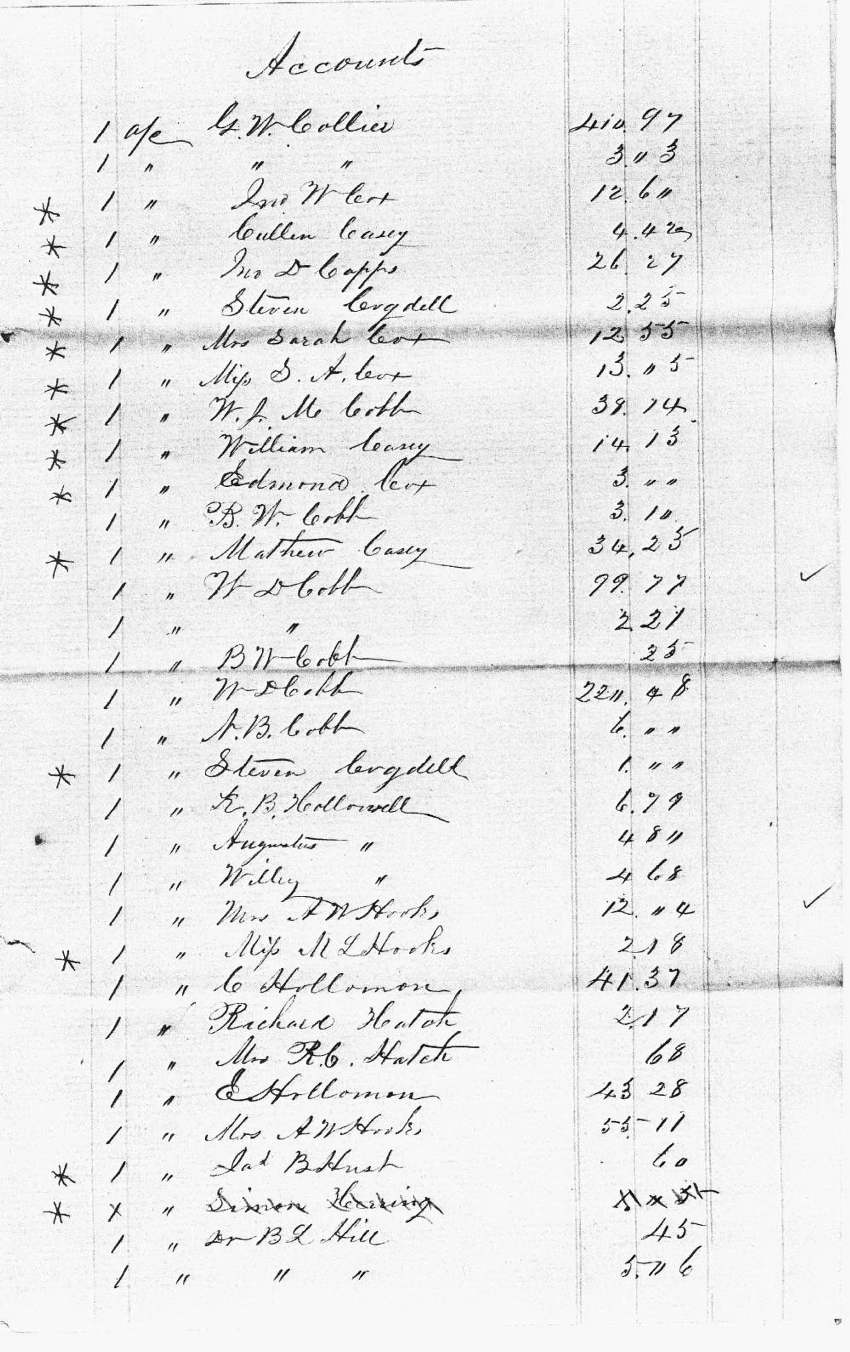 Accounts
1 a/c G. W. Collier 410.97
1 " " " 3."3
* 1 " Jno W Cox 12.6"
* 1 " Cullen Casey 4.42
* 1 " Jno D Capps 26.27
* 1 " Steven Cogdell 2.25
* 1 " Mrs Sarah Cox 12 55
* 1 " Miss S. A. Cox 13."5
* 1 " W. J. M Cobb 39.74
* 1 " William Casey 14.13
* 1 " Edmond Cox 3.""
1 " B. W. Cobb 3.10
* 1 " Mathew Casey 34.25
1 " W D Cobb 99.77 ✓
1 " " 2.21
1 " B W Cobb 25
1 " W D Cobb 22".48
1 " N. B. Cobb 6.""
* 1 " Steven Cogdell 1.""
1 " K. B. Hollowell 6.79
1 " Augustus " 4 8"
1 " Willey " 4 68
1 " Mrs A W Hooks 12."4 ✓
* 1 " Miss M L Hooks 2.18
1 " C Hollomon 41.37
1 " Richard Hatch 2.17
1 " Mrs R. C. Hatch 68
1 " E Hollomon 43 28
1 " Mrs. A W Hooks 55 11
* 1 " Jas B Hust 60
* x " Simon Herring
1 " Dr B L Hill 45
1 " " " 5."6